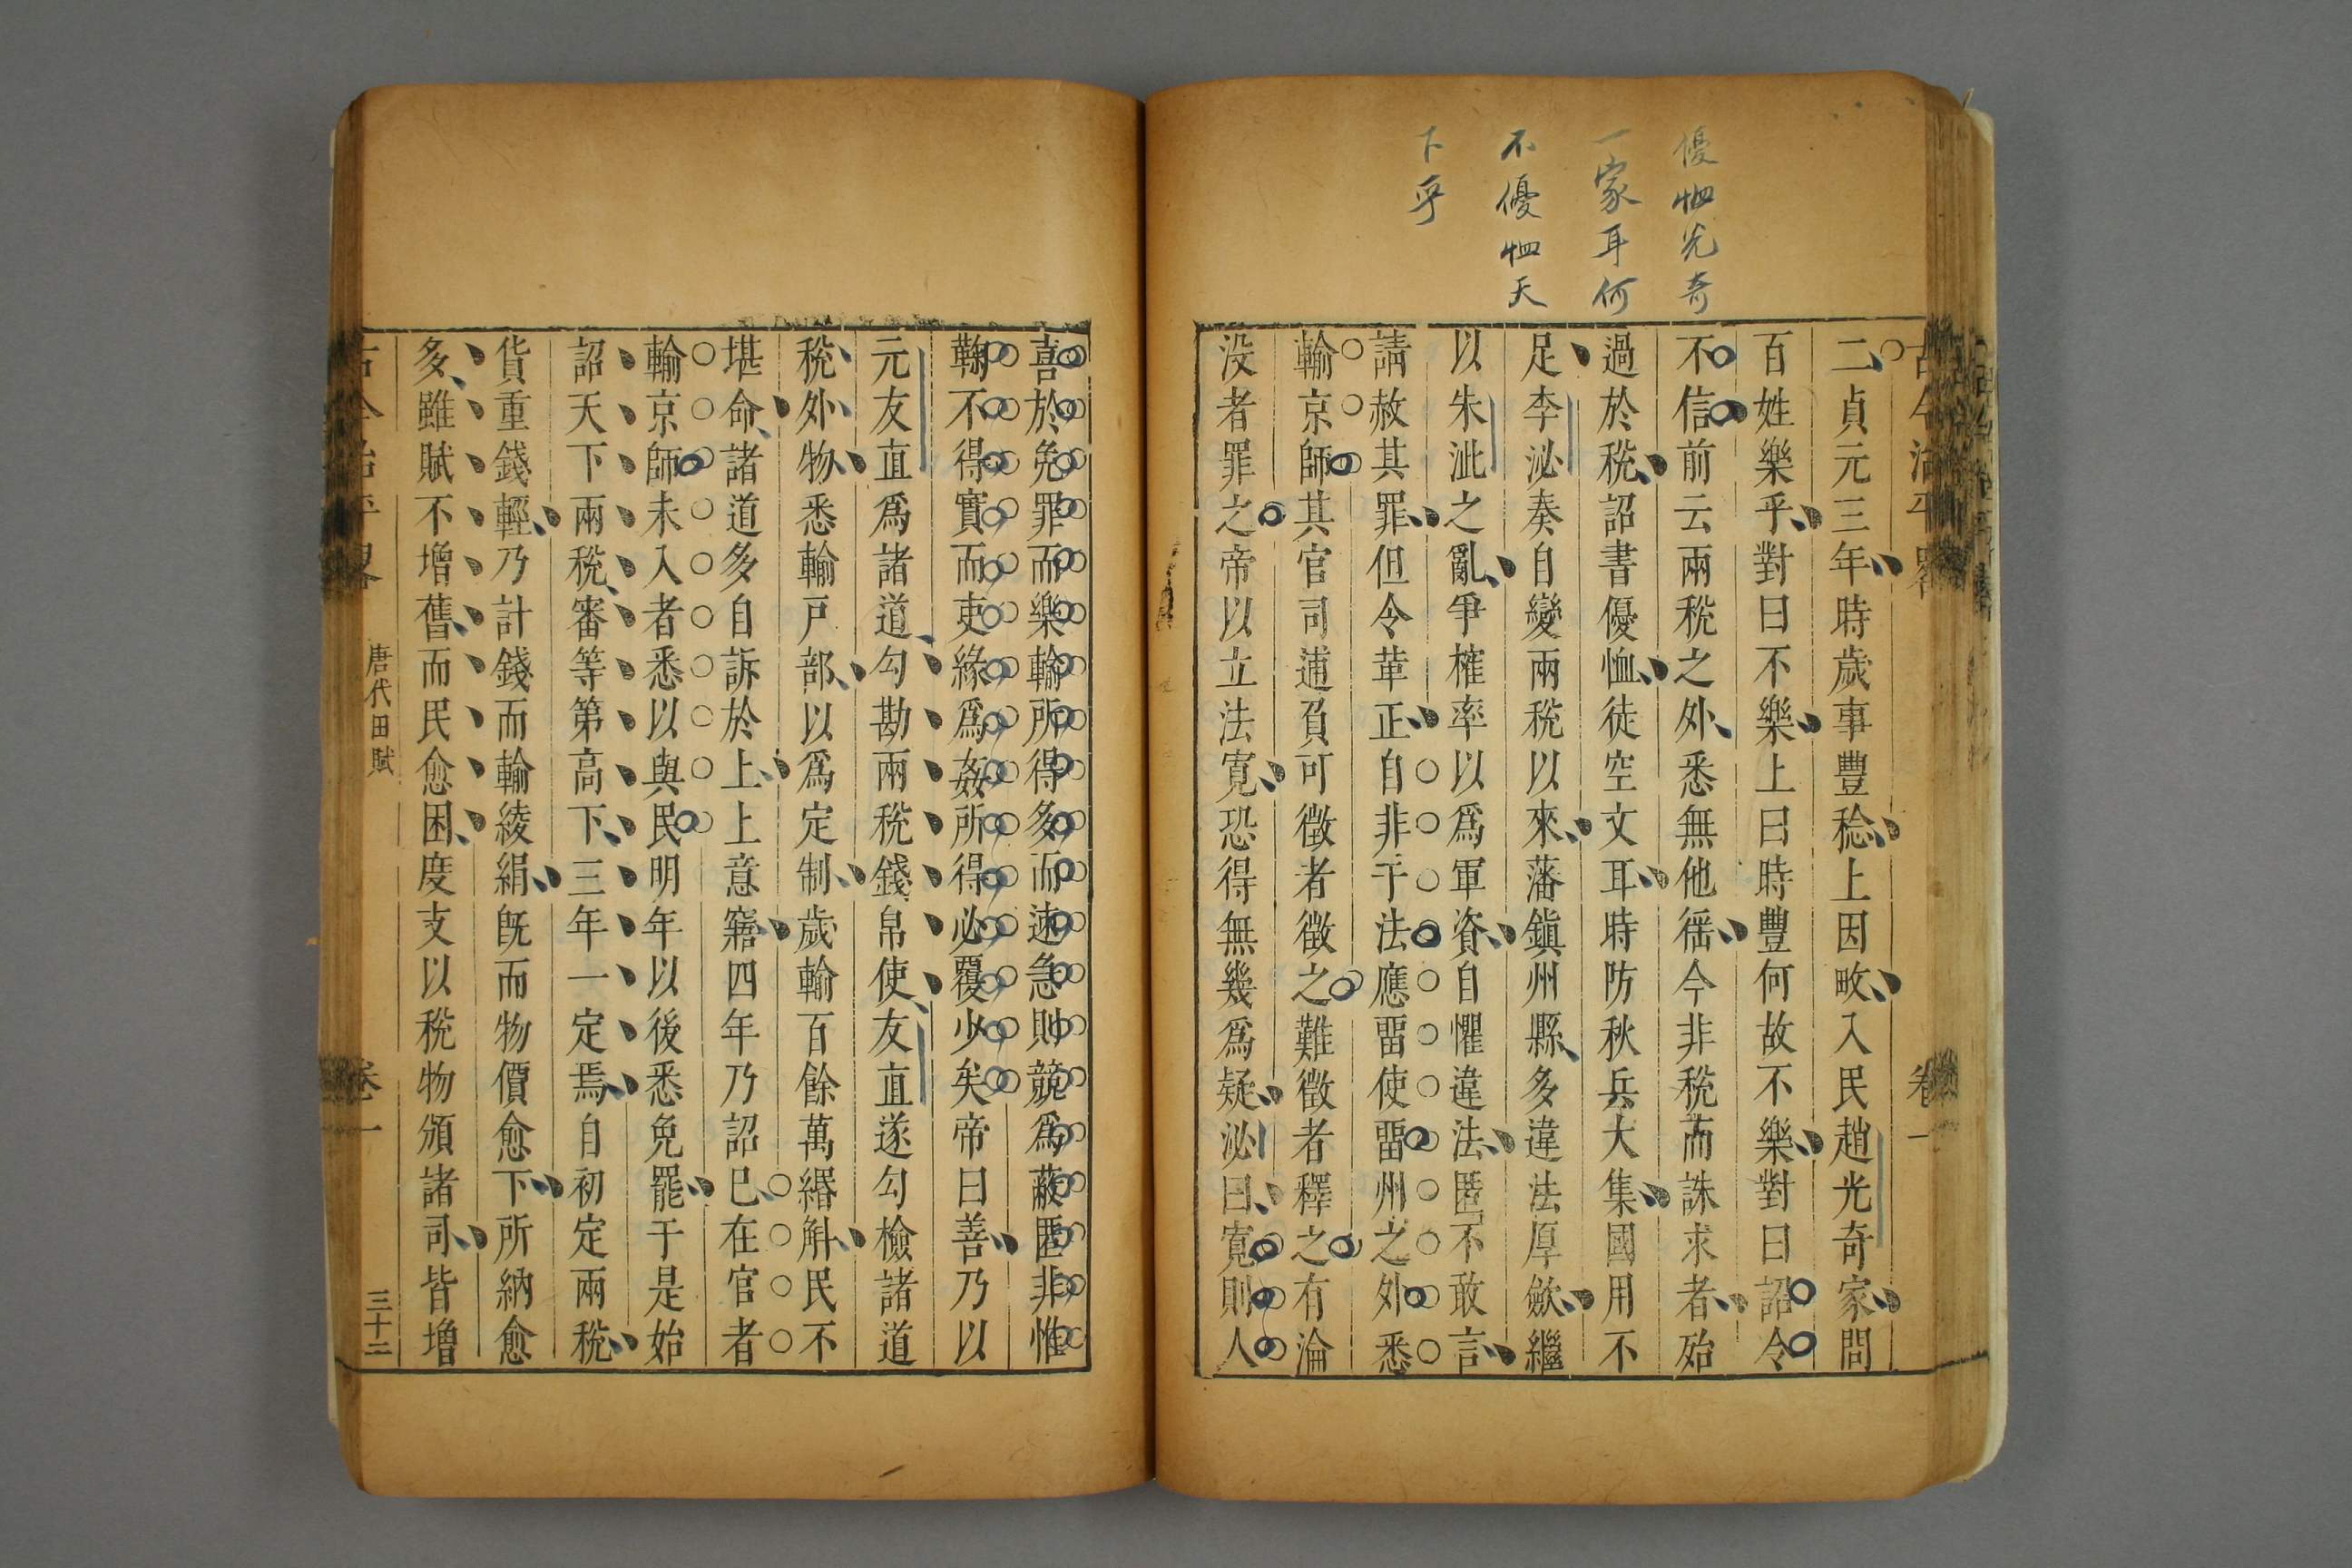 優恤光奇
一家耳何
不優恤天
下乎
古今治平畧
卷一
二貞元三年時歲事豐稔上因畋入民趙光奇家問
百姓樂乎對曰不樂上曰時豐何故不樂對曰詔令
不信前云兩稅之外悉無他徭今非稅而誅求者殆
過於稅詔書優恤徒空文耳時防秋兵大集國用不
足李泌奏自變兩稅以來藩鎭州縣多違法厚歛繼
以朱泚之亂爭榷率以爲軍資自懼違法匿不敢言
請赦其罪但令革正自非于法應畱使畱州之外悉
輸京師其官司逋負可徵者徵之難徵者釋之有淪
没者罪之帝以立法寛恐得無幾爲疑泌曰寛則人
喜於免罪而樂輸所得多而速急則競爲蔽匿非惟
鞫不得實而吏緣爲姦所得必覆少矣帝曰善乃以
元友直爲諸道勾勘兩稅錢帛使友直遂勾檢諸道
稅外物悉輸戸部以爲定制歲輸百餘萬緡斛民不
堪命諸道多自訴於上上意寤四年乃詔已在官者
輸京師未入者悉以與民明年以後悉免罷于是始
詔天下兩稅審等第高下三年一定焉自初定兩稅
貨重錢輕乃計錢而輸綾絹旣而物價愈下所納愈
多雖賦不增舊而民愈困度支以稅物頒諸司皆增
古今治平畧
唐代田賦
卷一
三十二